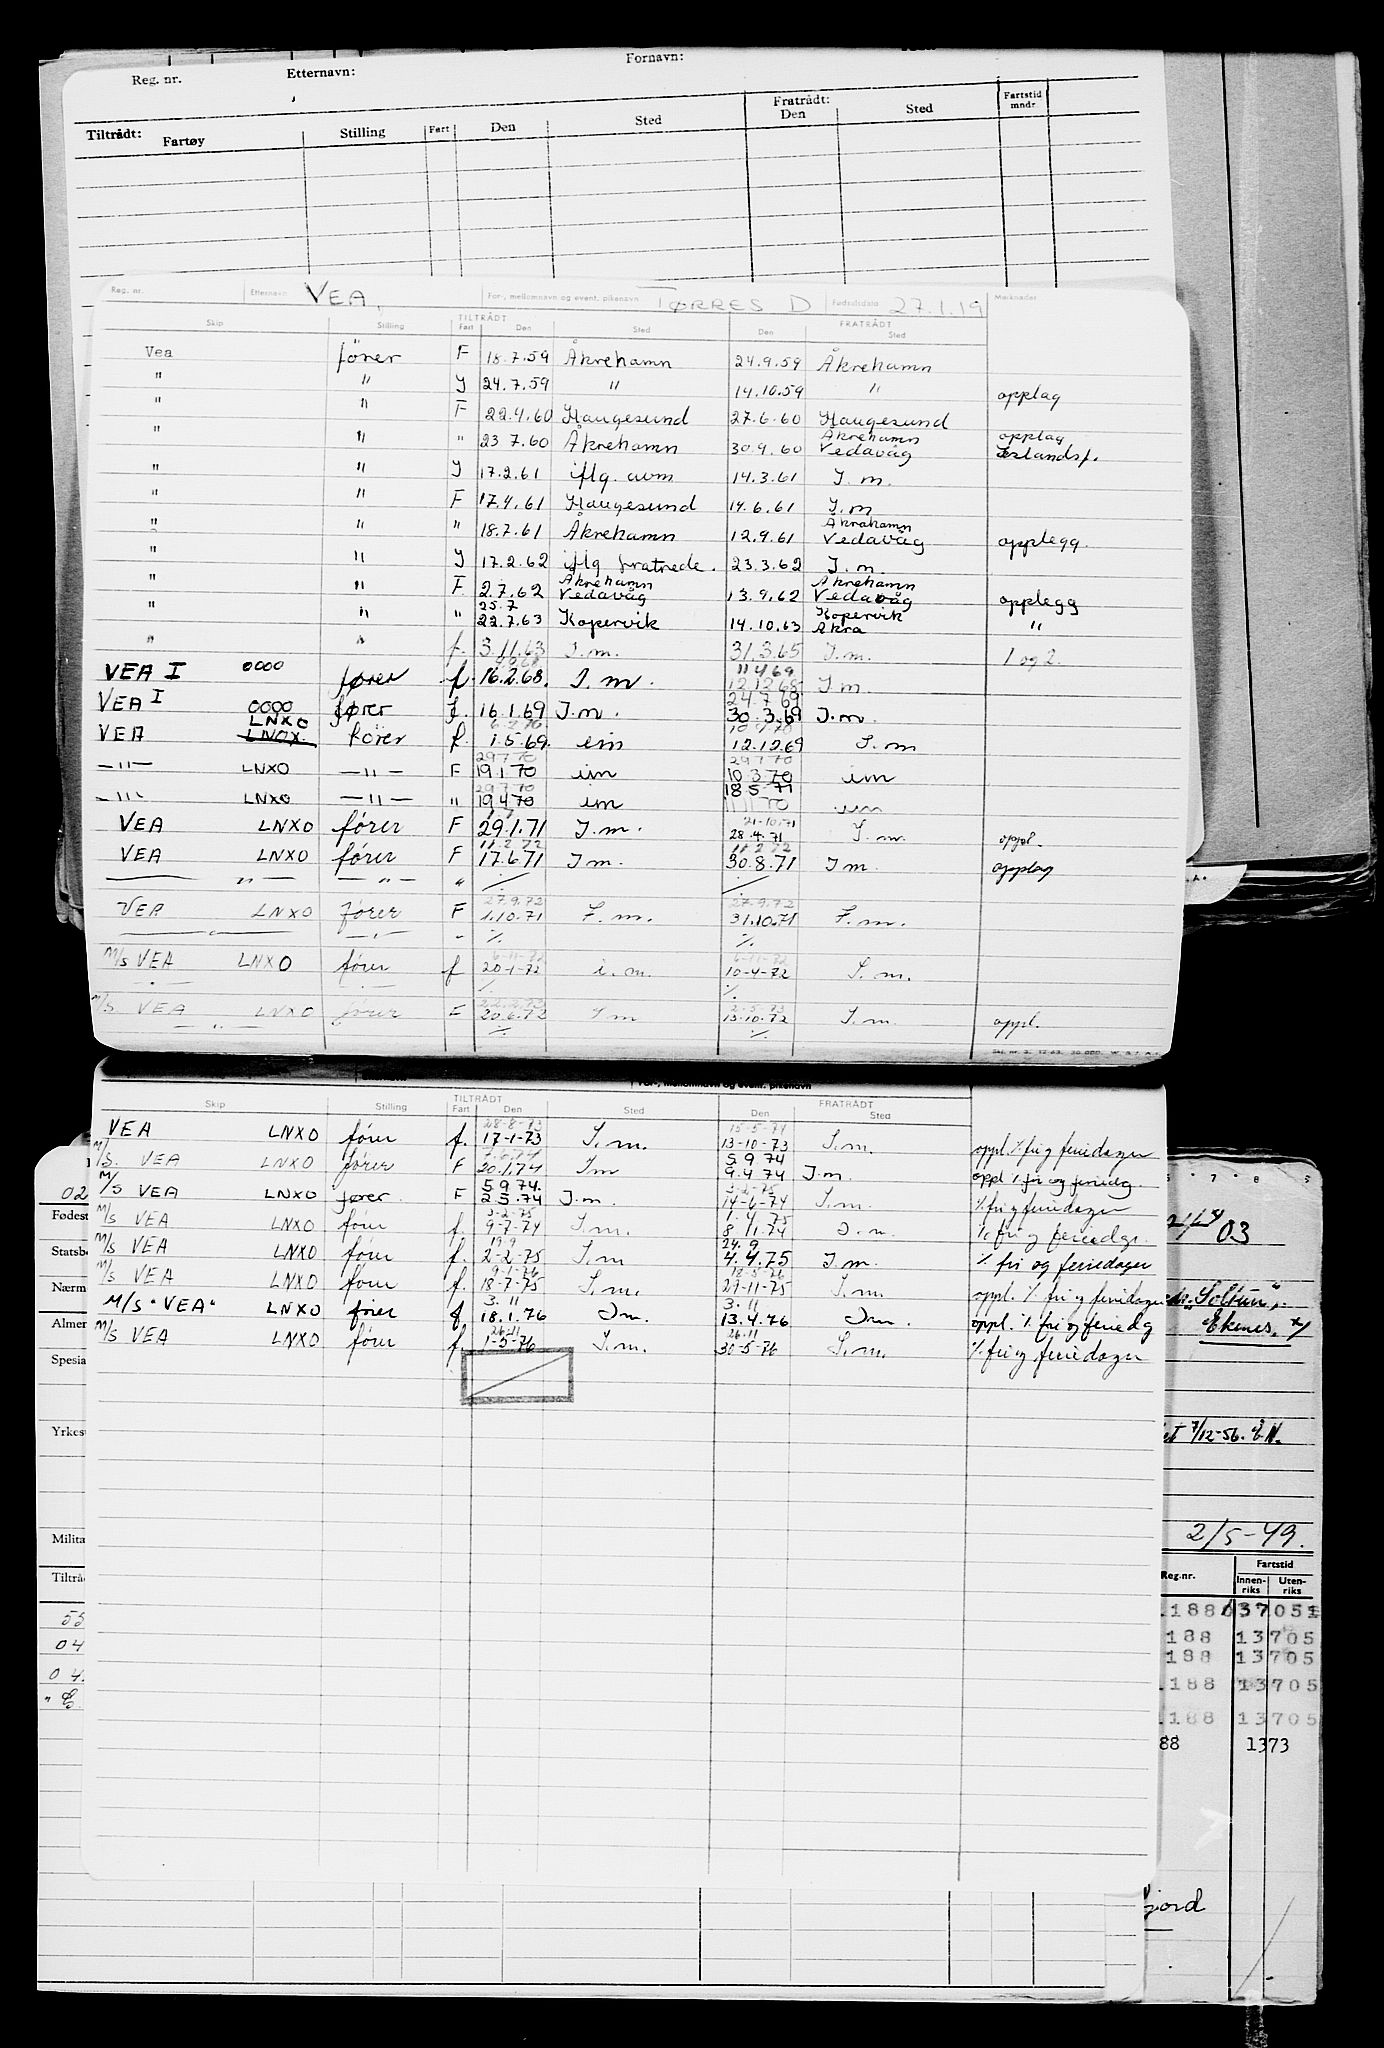 Reg. nr. Etternavn: Fornavn:
Tiltrådt: Fratrådt: Fartstid mndr
Fartøy Stilling Fart Den Sted Den Sted
Reg. nr. Etternavn VEA, For-, mellomnavn og event. pikenavn TORRES D Fødselsdato 27.1.19 Merknader
TILTRÅDT FRATRÅDT
Skip Stilling Fart Den Sted Den Sted
Vea förer F 18.7.59 Åkrehamn 24.9.59 Åkrehamn
" " J 24.7.59 " 14.10.59 " opplag
" " F 22.4.60 Haugesund 27.6.60 Haugesund
Åkrehamn opplag
" " " 23 7.60 Åkrehamn 30.9.60 Vedavåg Islandsf.
" " J 17.2.61 iflg. avm 14.3.61 I. m.
" " F 17.4.61 Haugesund 14.6.61 I. m
Åkrahamn
" " " 18.7.61 Åkrehamn 12.9.61 Vedavåg opplegg.
" " J 17.2.62 iflg fratrede. 23.3.62 I. m.
Åkrehamn Åkrehamn
" " F. 2.7.62 Vedavåg 13.9.62 Vedavåg opplegg
25.7 Kopervik
" " " 22.7.63 Kopervik 14.10.63 Åkra "
" " f. 3.11.63 I. m. 31.3.65 I. m. 1 og 2.
11 4 69
VEA I 0000 fører f. 16.2.68. I. m. 12.12.68 I m
24.7.69
VEA I 0000 fører f. 16.1.69 I.m. 30.3.69 I.m.
LNXO 6.2.70
VEA LNOX. förer f. 1.5.69. eim 12.12.69 I. m
29 7 70 29 1 70
—"— LNXO —"— F 19.1.70 im 10 3 70 im
29 7 70 18 5 71
—"— LNXO —"— " 19.4.70 im 11.11 70 im
21-10.71
VEA LNXO fører F 29.1.71 I.m. 28.4.71 I.m. oppl.
11.2 72 11 2 72
VEA LNXO fører F 17.6.71 I m. 30.8.71 I m. opplag
—"— —"— " ⁒ ⁒
27.9.72 27.9.72
VEA LNXO fører F 1.10.71 I. m. 31.10.71 I. m.
⁒ ⁒
6-11-72 6-11-72
M/S VEA LNXO fører f 20-1-72 i. m. 10-4-72 I. m.
⁒ ⁒
22.2.73 2-5-73
M/S VEA LNXO fører F 20.6.72 I m 13.10.72 I. m. oppl.
—"— ⁒ ⁒
For-, mellomnavn og event. pikenavn
TILTRÅDT FRATRÅDT
Skip Stilling Fart Den Sted Den Sted
28-8-73 15-5-74
VEA LNXO fører f. 17-1-73 I. m. 13-10-73 I. m. oppl. ⁒ fri og feriedager
7.6.74 5 9 74
M/S. VEA LNXO fører F 20.1.74 I m 9.4 74 I m. oppl ⁒ fri og feriedg.
5 9 74. 3-2-75
M/S VEA LNXO fører F 2.5.74 I.m. 14-6-74 I. m. ⁒ fri og feriedager
3-2-75 1. 4 75
M/S VEA LNXO fører f. 9-7-74 I. m. 8 11.74 I. m. ⁒ fri og feriedgr.
19.9 24. 9
M/S VEA LNXO fører f. 2-2-75 I. m 4.4.75 I m. ⁒ fri og feriedager
9-1-76 18-5-76
M/S VEA LNXO fører f. 18-7-75 I. m. 29-11-75 I. m. oppl. ⁒ fri og feriedager
3. 11 3. 11
M/S "VEA" LNXO fører f 18.1.76 I m. 13.4.76 I m. oppl. ⁒ fri og feriedg
26.11 26.11
M/S VEA LNXO fører f. 1-5-76 I. m. 30-5-76 I. m. ⁒ fri og feriedager
02
Fødest
Statsbo
Nærm
Almer
Spesia
Yrkes
Milita
Tiltrå
04
04
03
"Solsun",
Ekenes,
7/12-56.
2/5-49.
Reg.nr. Fartstid
Innen-riks Uten-riks
188 13705
188 13705
188 13705
188 13705
88 1373
jord